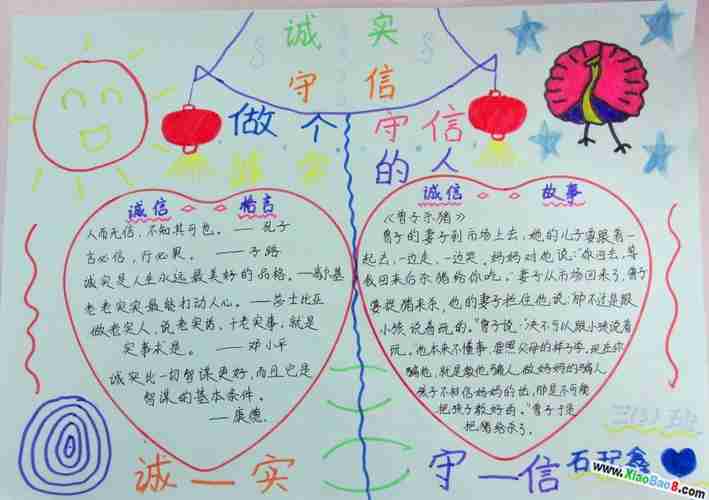 诚实
守信
做个守信
诚实
的人
诚信 格言
人而无信，不知其可也。——孔子
言必信，行必果。——子路
诚实是人生永远最美好的品格。——高尔基
老老实实最能打动人心。——莎士比亚
做老实人，说老实话，干老实事，就是
实事求是。——邓小平
诚实比一切智谋更好，而且它是
智谋的基本条件。
——康德
诚信 故事
《曾子杀猪》
曾子的妻子到市场上去，她的儿子要跟着一
起去，一边走，一边哭。妈妈对他说："你回去，等
我回来后杀猪给你吃。"妻子从市场回来了，曾子
要捉猪来杀，他的妻子拦住他说："那不过是跟
小孩说着玩的。"曾子说："决不可以跟小孩说着
玩。他本来不懂事，要照父母的样子学，现在你
骗他，就是教他骗人。做妈妈的骗人，
孩子不相信妈妈的话，那是不可能
把孩子教好的。"曾子于是
把猪给杀了。
诚一实
守一信
三(3)班
www.XiaoBao8.com